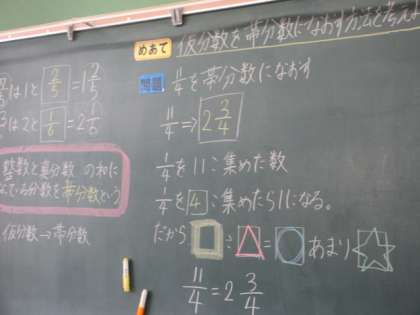 めあて 仮分数を帯分数になおす方法を考え
問題 11/4を帯分数になおす
11/4 ⇒ 2 3/4
1/4を11こ集めた数
1/4を4こ集めたら1になる。
だから □÷△=○あまり☆
11/4 = 2 3/4
は1と2/5=1 2/5
は2と1/6=2 1/6
整数と真分数の和に
なっている分数を帯分数という
仮分数→帯分数